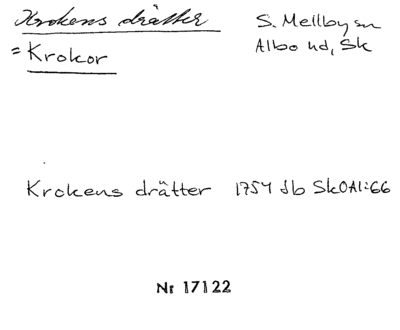 Krokens drätter S. Mellby sn
= Krokor Albo hd, Sk
Krokens drätter 1754 db SkOAI:66
Nr 17122